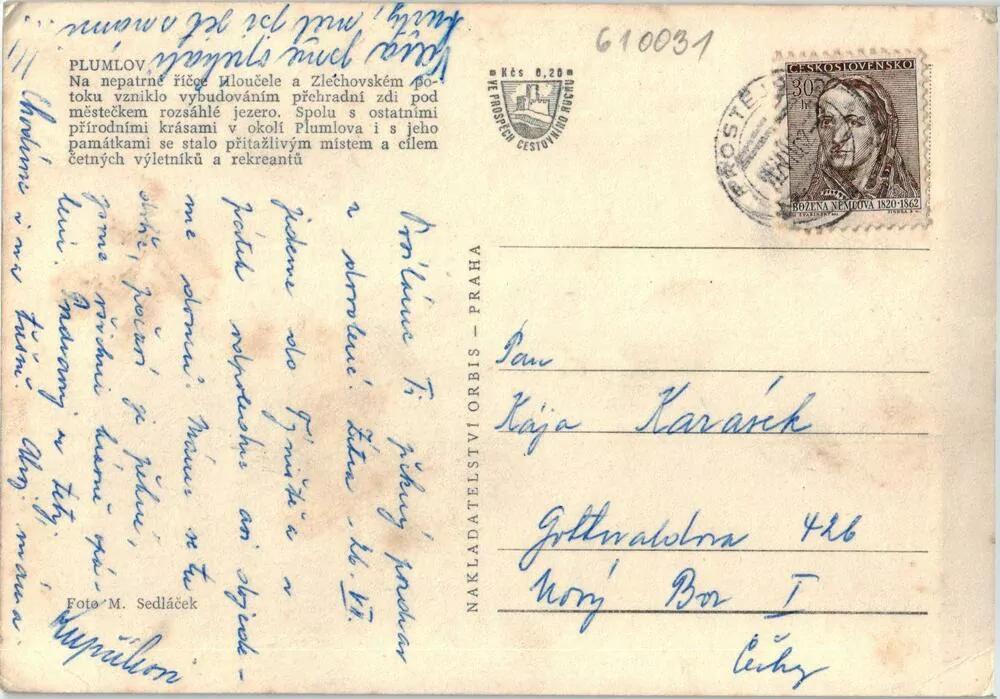 610031
PLUMLOV
Na nepatrné říčce Hloučele a Zlechovském po-
toku vzniklo vybudováním přehradní zdi pod
městečkem rozsáhlé jezero. Spolu s ostatními
přírodními krásami v okolí Plumlova i s jeho
památkami se stalo přitažlivým místem a cílem
četných výletníků a rekreantů
Kčs 0,20
VE PROSPĚCH CESTOVNÍHO RUCHU
ČESKOSLOVENSKO
30
BOŽENA NĚMCOVÁ 1820-1862
PROSTĚJOV
Posíláme Ti pěkný pozdrav
z dovolené. Zítra 26. VII.
jedeme do Týniště a v
pátek odpoledne asi dojede-
me domů. Máme se tu
dobře, počasí je pěkné,
jsme všichni hezně opá-
leni. Pozdravuj tety.
Chodíme i na túšně. Ahoj máma
jsme
měl jsi jet s námi
NAKLADATELSTVÍ ORBIS — PRAHA
Pan
Kája Karásek
Gottwaldova 426
Nový Bor I
Čechy
Foto M. Sedláček